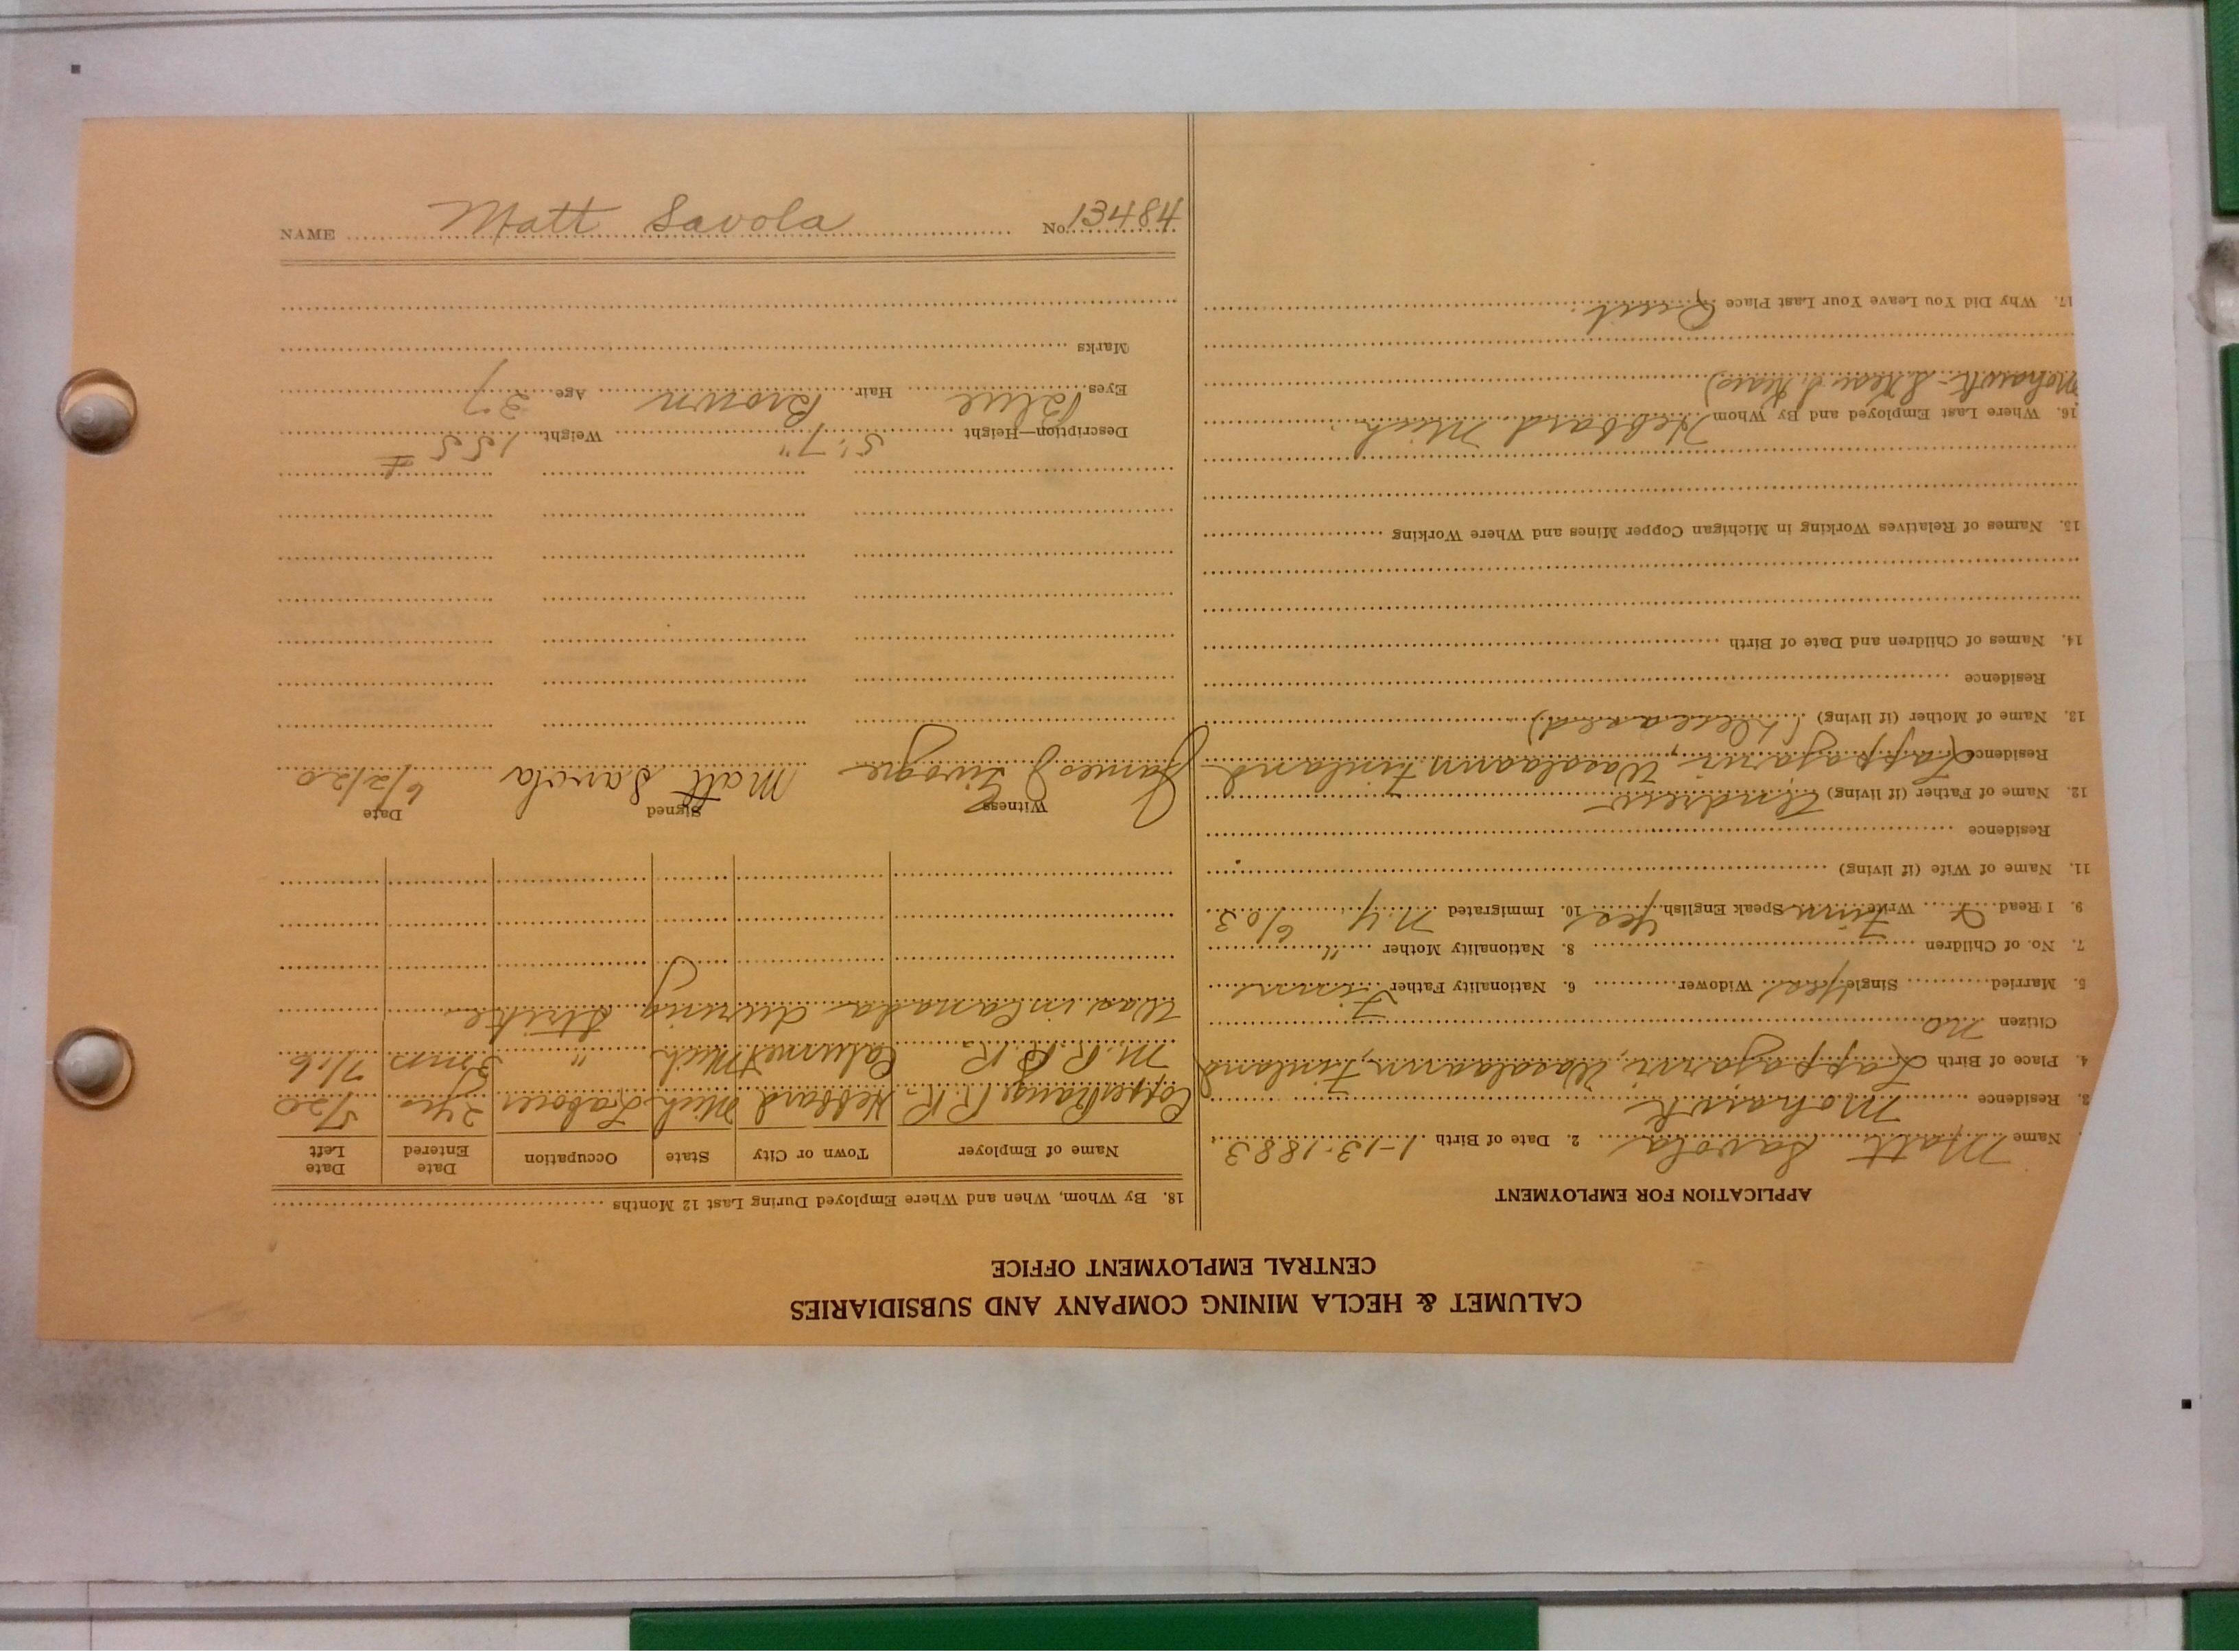 NAME Matt Savola No. 13484
CALUMET & HECLA MINING COMPANY AND SUBSIDIARIES
CENTRAL EMPLOYMENT OFFICE
APPLICATION FOR EMPLOYMENT
Name Matt Savola 2. Date of Birth 1-13-1883
3. Residence Mohawk
4. Place of Birth Lappajarvi, Wasalaann Finland
Citizen No
5. Married Single yes Widower 6. Nationality Father Finn
7. No. of Children 8. Nationality Mother "
9. I Read & Write Finn Speak English yes 10. Immigrated N.Y. 6/03
11. Name of Wife (if living)
Residence
12. Name of Father (if living) Andrew
Residence Lappajarvi, Wasalaann Finland
13. Name of Mother (if living) (Deceased)
Residence
14. Names of Children and Date of Birth
15. Names of Relatives Working in Michigan Copper Mines and Where Working
16. Where Last Employed and By Whom Hebbard Mich
Mohawk
17. Why Did You Leave Your Last Place Quit.
18. By Whom, When and Where Employed During Last 12 Months
Name of Employer Town or City State Occupation Date Entered Date Left
Copper Range R.R. Hebbard Mich Laborer 2 yrs 5/20
M. R. R. R. Calumet Mich " 3 mos 7/16
Was in Canada during Strike
Witness Signed Date
James J Matt Savola 6/2/20
Description—Height 5' 7" Weight 155 #
Eyes Blue Hair Brown Age 37
Marks